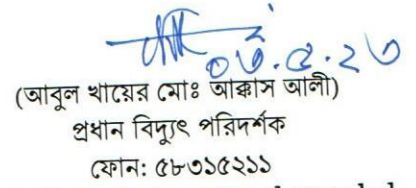 ০৩.৫.২৩
(আবুল খায়ের মোঃ আক্কাস আলী)
প্রধান বিদ্যুৎ পরিদর্শক
ফোন: ৫৮৩১৫২১১